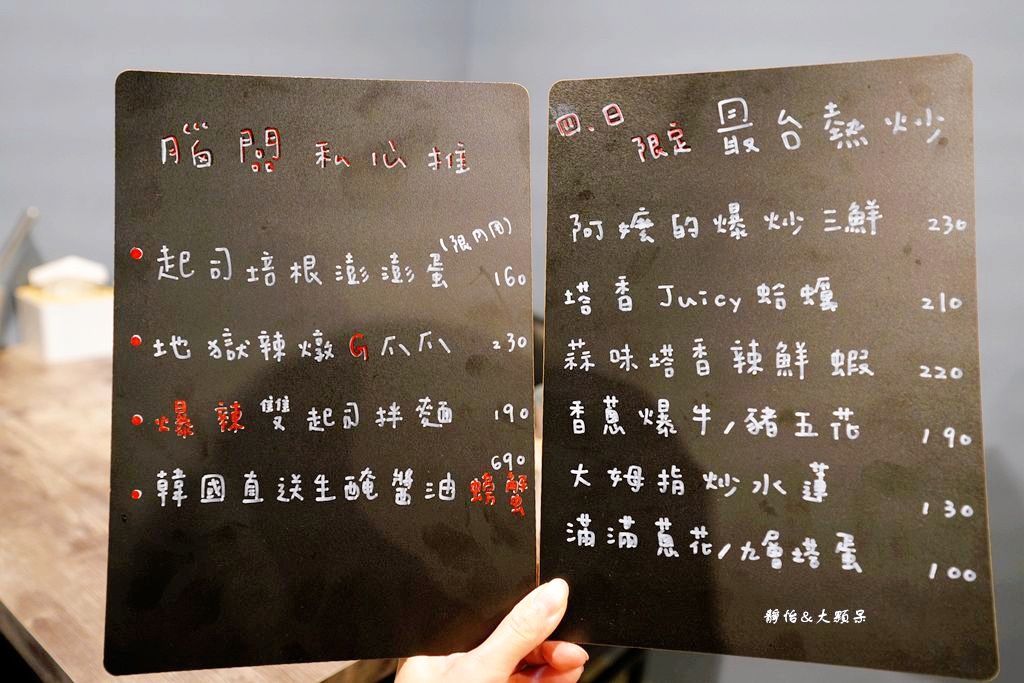 腦闆私心推
(限內用)
起司培根澎澎蛋 160
地獄辣燉G爪爪 230
爆辣雙起司拌麵 190
韓國直送生醃醬油螃蟹 690
四.日限定 最台熱炒
阿嬤的爆炒三鮮 230
塔香Juicy蛤蠣 210
蒜味塔香辣鮮蝦 220
香蔥爆牛/豬五花 190
大姆指炒水蓮 130
滿滿蔥花/九層塔蛋 100
靜怡&大顆呆